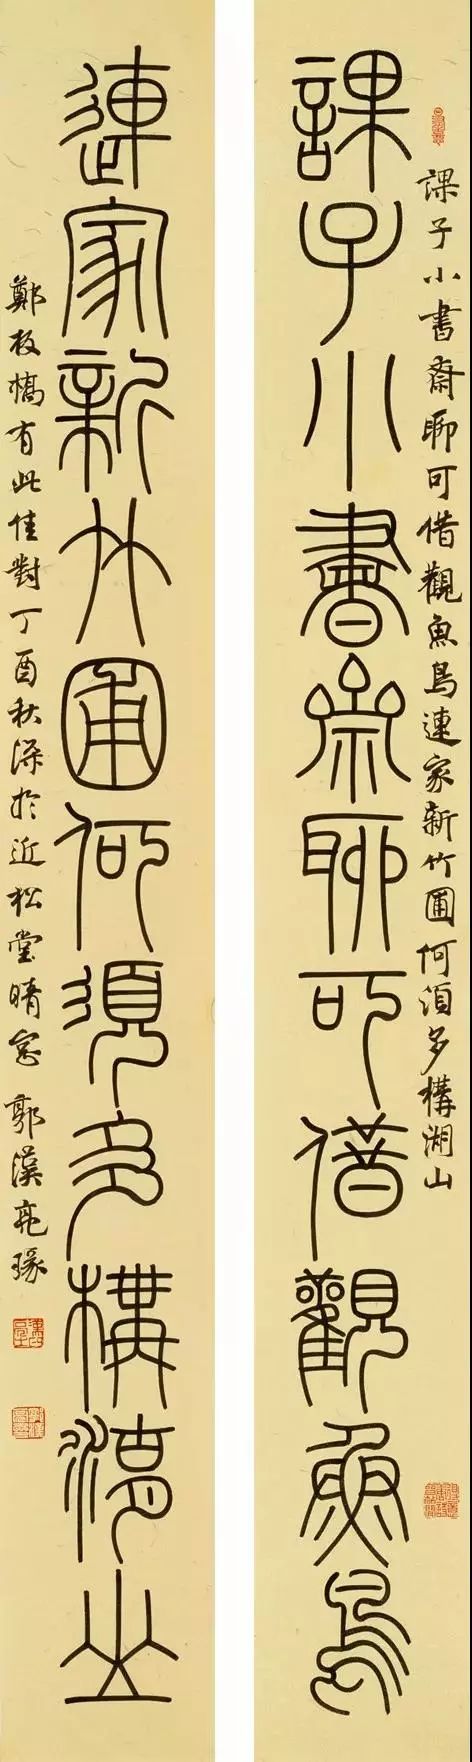 課子小書齋聊可借觀魚鳥連家新竹圃何須多構湖山
課子小書齋聊可借觀魚鳥
連家新竹圃何須多構湖山
鄭板橋有此佳對丁酉秋深於近松堂晴窓 郭漢亮瑑